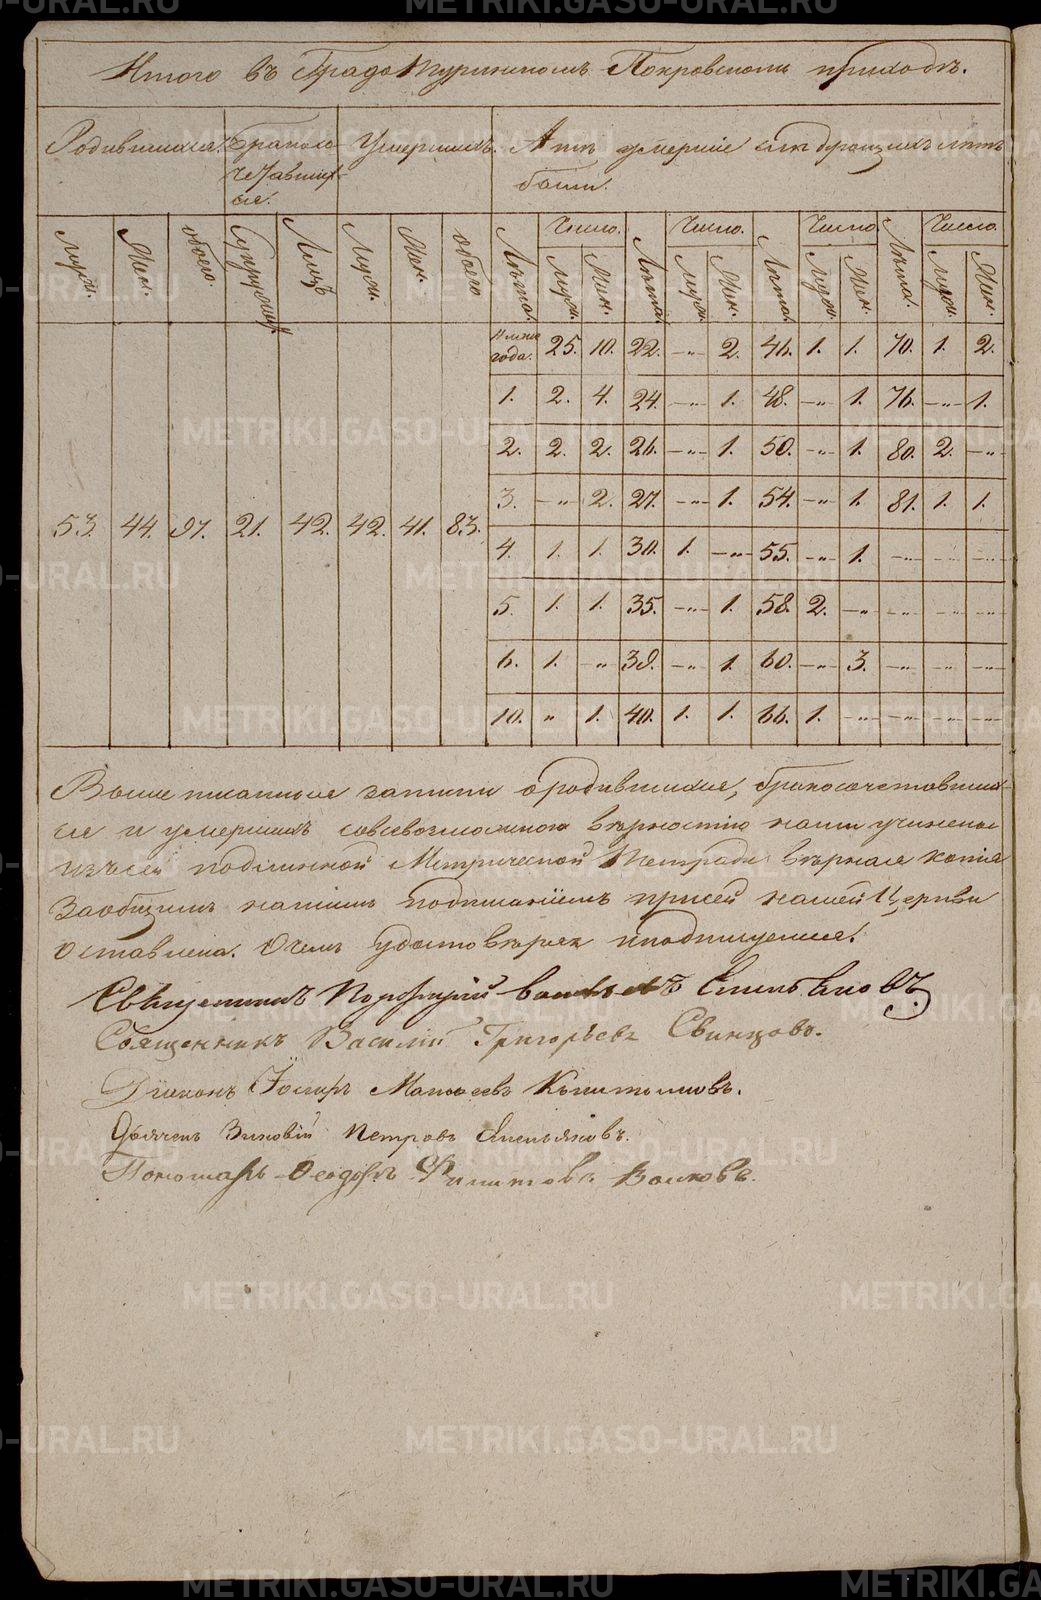 Итого въ Градо Туринскомъ Покровскомъ приходѣ.
Родившихся. Бракосо- Умершихъ. А ктѣ умершіе слѣдующихъ лѣтъ
четавших- были.
ся.
Число. Число. Число Число.
Муж. Жен. обоего. Супружеств Лицъ Муж. Жен. обоего Лѣта. Муж. Жен. Лѣта Муж. Жен. Лѣта. Муж. Жен. Лѣта. Муж. Жен.
Ниже
года. 25. 10. 22. -"- 2. 46. 1. 1. 70. 1. 2.
1. 2. 4. 24. -"- 1. 48. -"- 1. 76. -"- 1.
2. 2. 2. 26. -"- 1. 50. -"- 1. 80. 2. -"-
3. -"- 2. 27. -"- 1. 54. -"- 1. 81. 1. 1.
53. 44. 97. 21. 42. 42. 41. 83.
4. 1. 1. 30. 1. -"- 55. -"- 1. -"- -"- -"-
5. 1. 1. 35. -"- 1. 58. 2. -"- -"- -"- -"-
6. 1. -"- 39. -"- 1. 60. -"- 3. -"- -"- -"-
10. " 1. 40. 1. 1. 66. 1. -"- -"- -"- -"-
Выше писанные записи о родившихся, бракосочетавших-
ся и умершихъ совсевозможною вѣрностію нами учинены
изъ сей подлинной Метрической Тетради вѣрная копія
Заобщимъ нашимъ подписаніемъ присей нашей Церкви
оставлена. Очемъ удостовѣряя иподписуемся.
Священникъ Порфирій Емельяновъ
Священникъ Василій Григорьевъ Свинцовъ.
Діаконъ Матѳеевъ Капитоновъ.
Дьячекъ Зиновій Петровъ Емельяновъ.
Пономарь Ѳеодоръ Филиповъ Волковъ.
METRIKI.GASO-URAL.RU